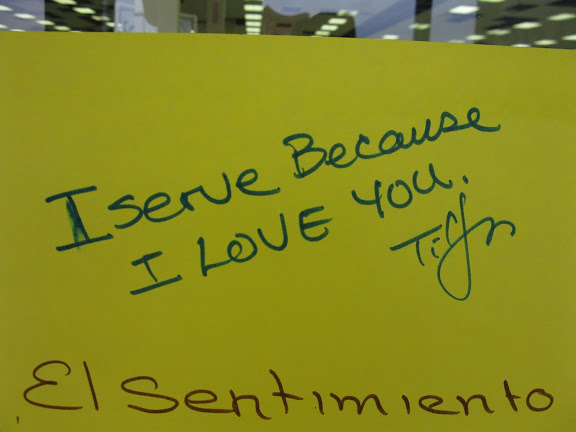 I serve Because
I LOVE YOU.
El Sentimiento